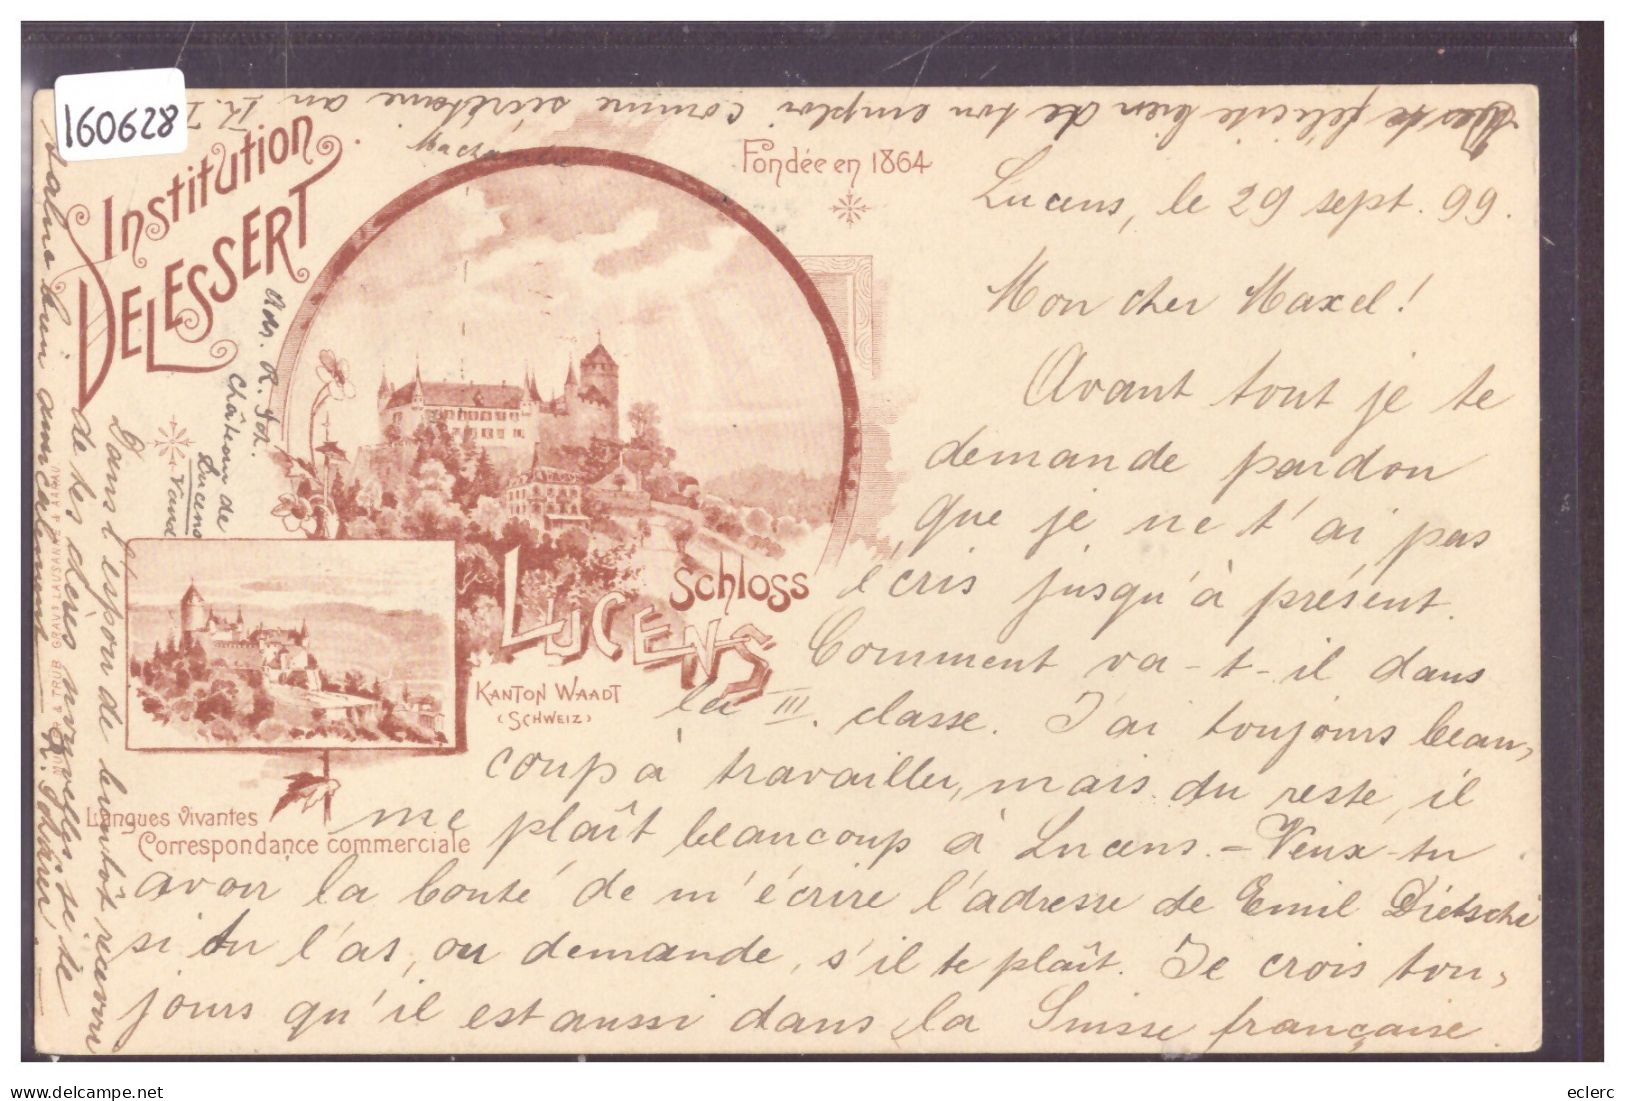 160628
Institution
DELESSERT
Fondée en 1864
Lucens, le 29 sept. 99.
Mon cher Maxel!
Avant tout je te
demande pardon
que je ne t'ai pas
écris jusqu'à présent.
Comment va-t-il dans
la III. classe. J'ai toujours beau-
coup à travailler, mais du reste, il
me plaît beaucoup à Lucens. - Veux-tu
avoir la bonté de m'écrire l'adresse de Emil Dietsche
si tu l'as, ou demande, s'il te plaît. Je crois tou-
jours qu'il est aussi dans la Suisse française.
Schloss
LUCENS
KANTON WAADT
(SCHWEIZ)
Langues vivantes
Correspondance commerciale
Adr. R.
Château de
Lucens
Vaud
Dans l'espoir de bientôt recevoir
de tes chères nouvelles, je te
salue bien amicalement
te félicite bien de ton emploi comme secrétaire au
eclerc